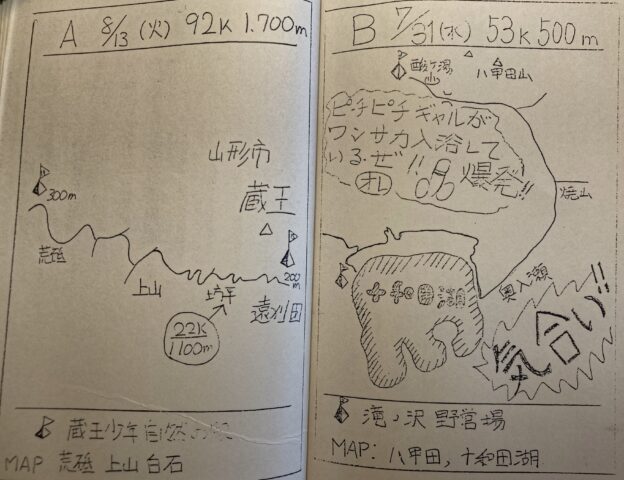 A 8/13 (火) 92K 1.700m
山形市
蔵王
300m
荒砥
上山
坊平
200m
遠刈田
22K
1100m
蔵王少年自然の家
MAP 荒砥 上山 白石
B 7/31 (水) 53K 500m
酸ヶ湯
八甲田山
ピチピチギャルが
ワンサカ入浴して
いるぜ!!
オレ
爆発!!
焼山
奥入瀬
十和田湖
気合い!!
滝ノ沢 野営場
MAP: 八甲田, 十和田湖